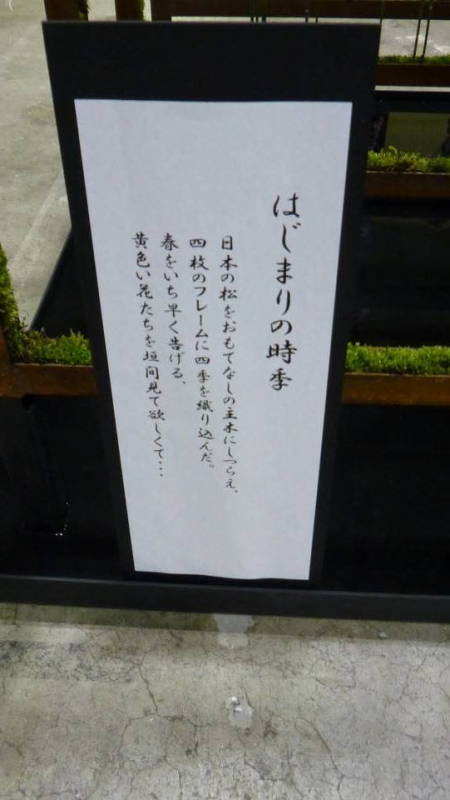 はじまりの時季
日本の松をおもてなしの主木にしつらえ、
四枚のフレームに四季を織り込んだ。
春をいち早く告げる、
黄色い花たちを垣間見て欲しくて・・・